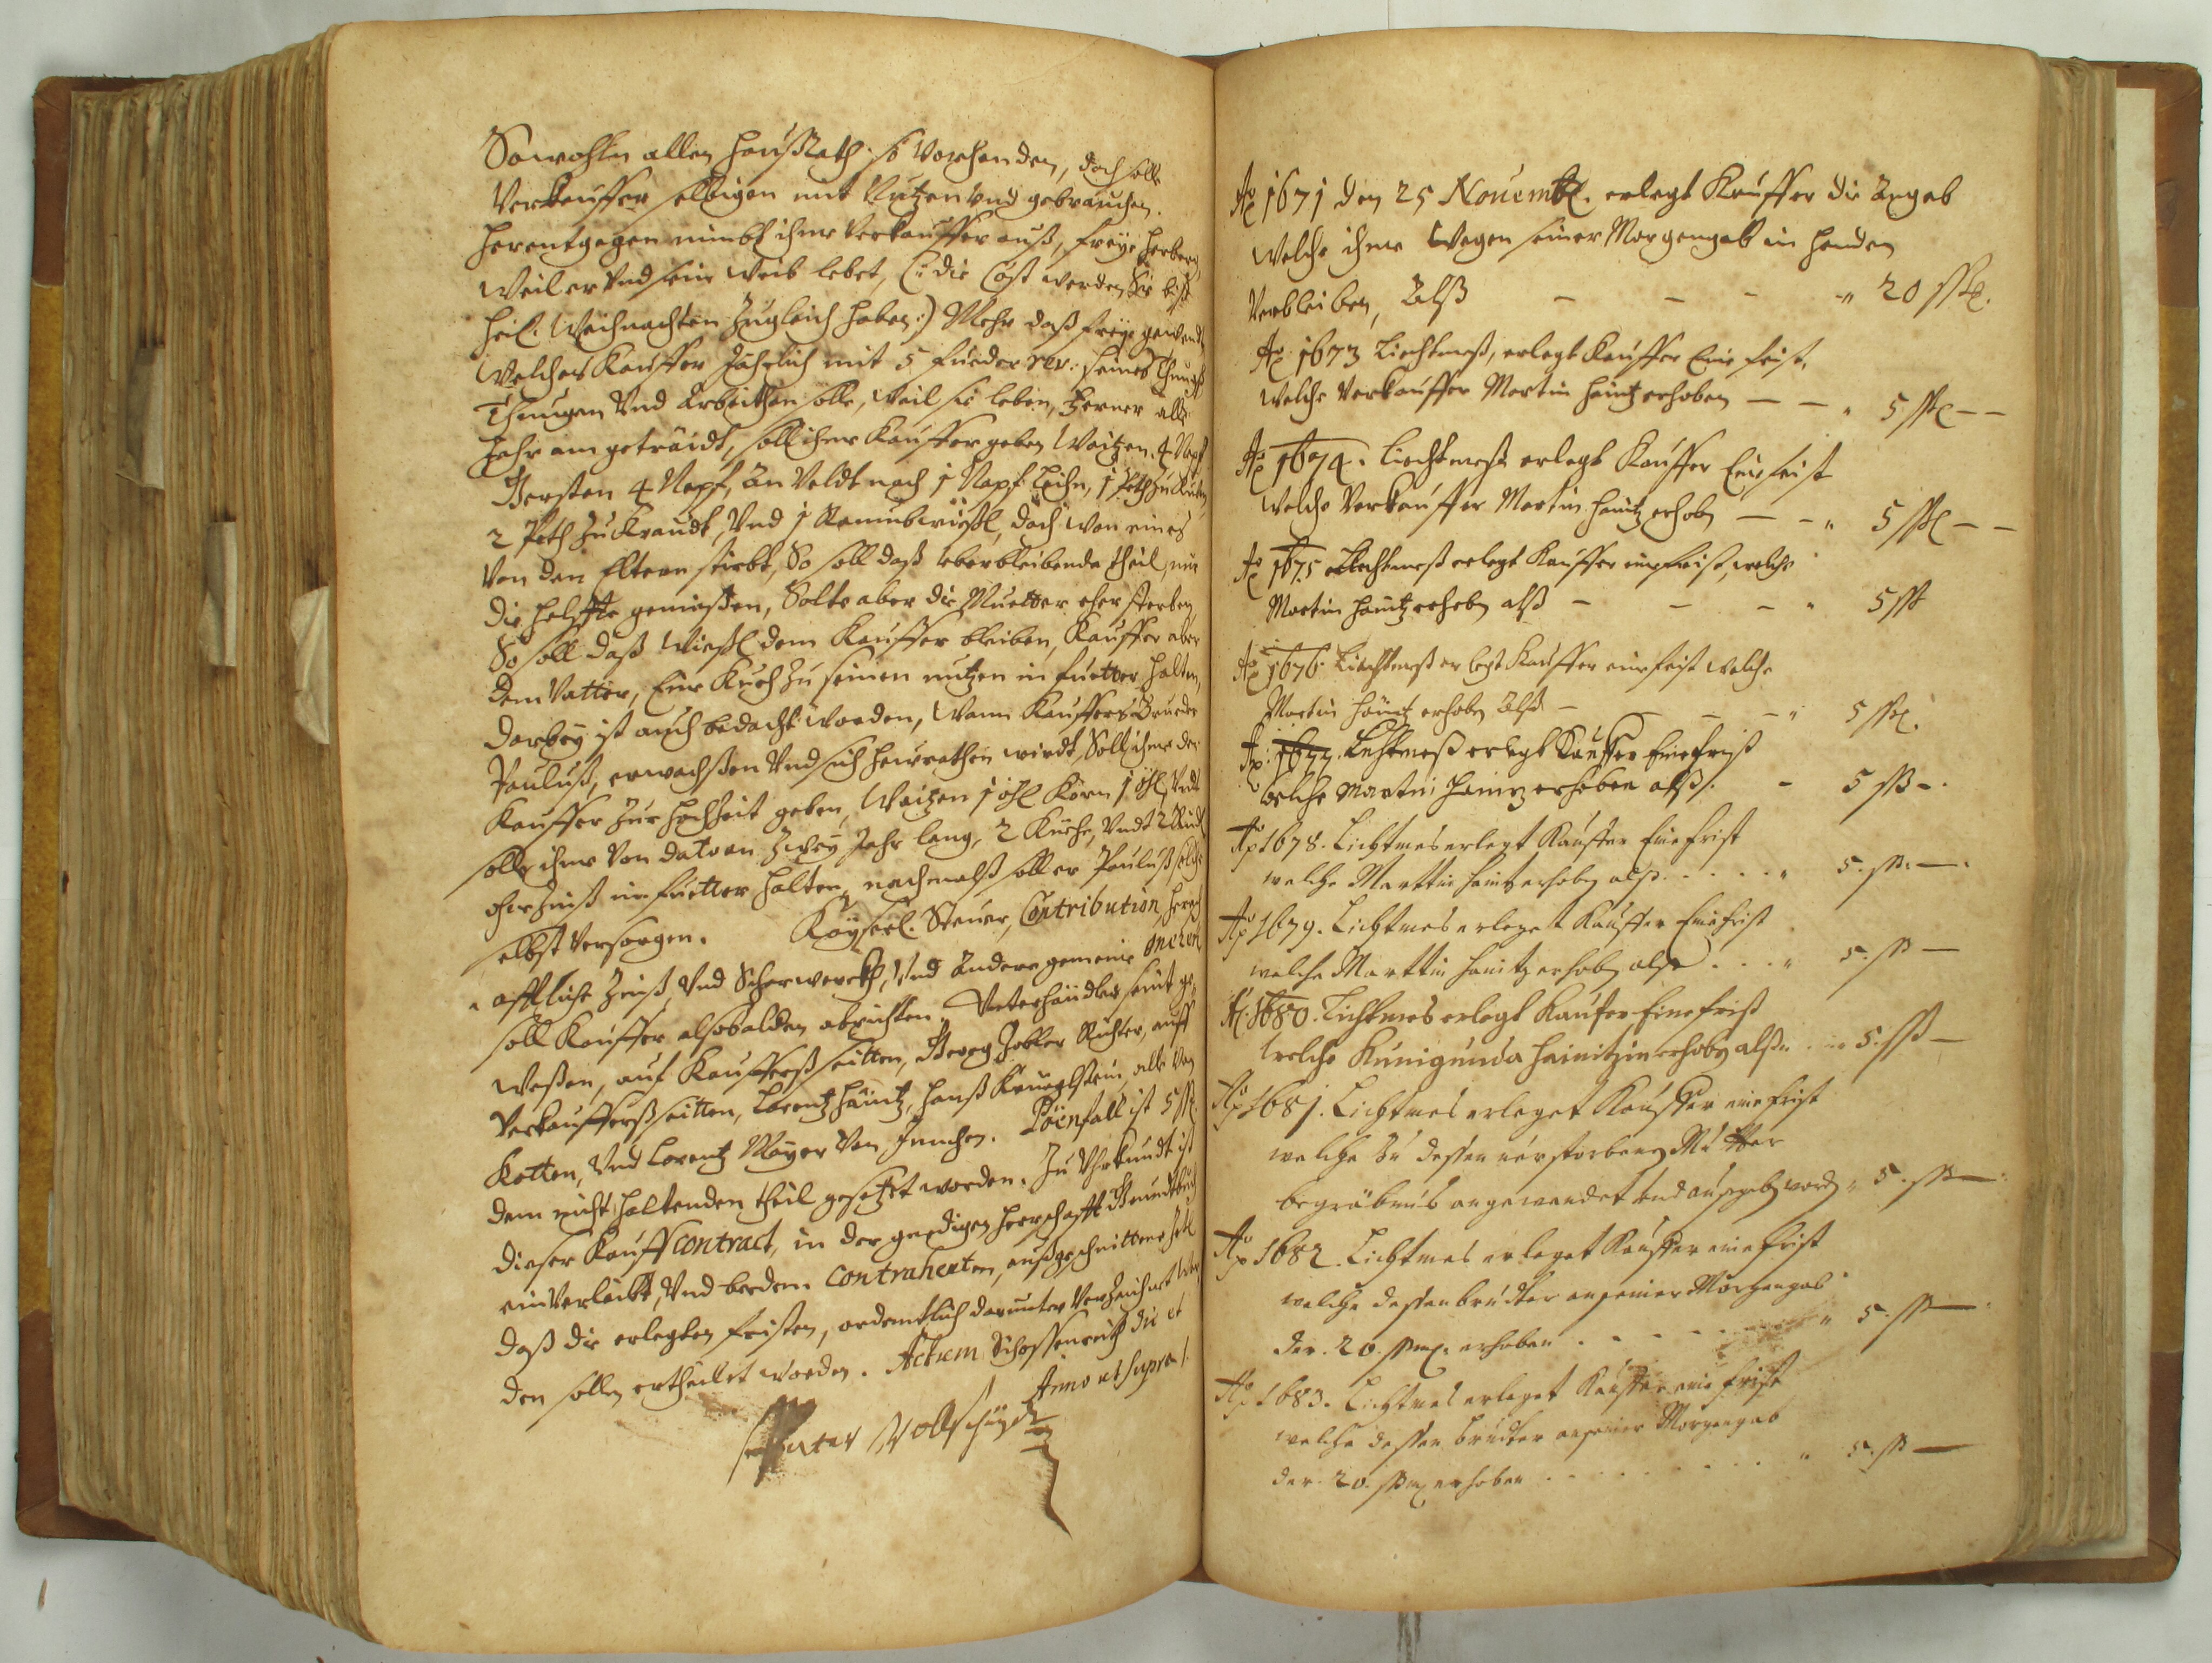 Sowohln allen Haußrath so vorhanden, doch solle
Verkauffer selbigen mit Nutzen vnd gebrauchen.
Herentgegen nimbt ihme Verkauffer auß, freye Herberg
weil er vnd sein Weib lebet, (: die Cost werden Sie biß
heil. Weihnachten zugleich haben :) Mehr daß freye gewendt
welches Kauffer Jährlich mit 5 Fueder rev: seines Thungß
Thungen vnd Arbeithen solle, weil sie leben, Ferner alle
Jahr am getraidt, soll ihme Kauffer geben Waitzen 4 Napf
Gersten 4 Napf, an Veldt noch 1 Napf Lein, 1 Peth zu Rueben
2 Peth zu Kraudt, Vnd 1 wießl, doch wan eines
von den Eltern stirbt, So soll daß vberbleibende theil, nur
die helffte geniessen, Solte aber die Muetter eher sterben
So soll daß Wießl dem Kauffer bleiben, Kauffer aber
dem Vatter, Eine Kueh zu seinen nutzen in Fuetter halten,
Darbey ist auch bedacht worden, Wann Kauffers Brueder
Pauluß, erwachßen Vnd sich heurathen wirdt, Soll ihme der
Kauffer zur Hochzeit geben, Waitzen 1 Korn 1 Vndt
solle ihme von dato an zwey Jahr lang, 2 Kuehe, Vndt 2 Rindl
ohne Zinß im Fuetter halten, nachmalß soll er Pauluß solche
selbst versorgen. Kayserl. Steuer, Contribution, herrsch
afftliche Zinß, Vnd Scharwerckh, Vnd andere gemeine onera
soll Kauffer alsobalden abrichten. Vnterhändler seint ge-
weßen, auf Kaufferß seitten, Georg Richter, auff
Verkaufferß seitten, Lorentz Häintz, Hanß alle von
Kotten, Vnd Lorentz Mayer von . Pöenfall ist 5 ßl.
dem nicht haltenden theil gesetzt worden. Zu Vhrkundt ist
dieser Kauff Contract, in der gnedigen Herrschafft Grundtbuch
einverleibt, Vnd beeden Contrahenten, außgeschnittene Zetl
daß die erlegten Fristen, ordentlich darunter verzeichnet wer-
den sollen ertheilet worden. Actum Schossenreith die et
Anno ut supra.
Peter
Ao 1671 den 25 Nouembl. erlegt Kauffer die Angab
welche ihme wegen seiner Morgengab in handen
verbleiben, Alß — — — " 20 ßl.
Ao 1673 Liechtmeß, erlegt Kauffer Eine frist,
welche Verkauffer Martin Häintz erhoben — — " 5 ßl — —
Ao 1674. Liechtmeß erlegt Kauffer Eine frist
welche Verkauffer Martin Häintz erhobn — — " 5 ßl — —
Ao 1675 Liechtmeß erlegt Kauffer ein frist, welche
Martin Häintz erhobn alß — — — " 5 ßl
Ao 1676 Liechtmeß erlegt Kauffer eine frist welche
Martin Häintz erhobn Alß — — — — " 5 ßl.
Ao: 1677. Lichtmeß erlegt Kauffer Eine frist
Welche Martin Heintz erhoben alß. — 5 ß —.
Ao 1678. Lichtmes erlegt Kauffer Eine frist
welche Marttin Haintz erhobn alß . . . . . " 5. ß. —.
Ao 1679. Lichtmes erleget Kauffer Eine frist
welche Marttin Hainitz erhobn alß . . . " 5. ß —
Ao. 1680. Lichtmes erlegt Kaufer Eine frist
welche Kunigunda Hainitzin erhobn alß . . . 5. ß —
Ao 1681. Lichtmes erleget Kauffer eine frist
welche zu dessen verstorbenen Mutter
begräbnus angewendet und ausgebn wordn " 5. ß —
Ao 1682. Lichtmes erleget Kauffer eine frist
welche dessen bruder an seiner Morgengab
der 20. erhoben . . . . . " 5. ß —
Ao 1683. Lichtmes erleget Kauffer eine frist
welche dessen bruder an seiner Morgengab
der 20. erhoben . . . . . . . . . " 5. ß —